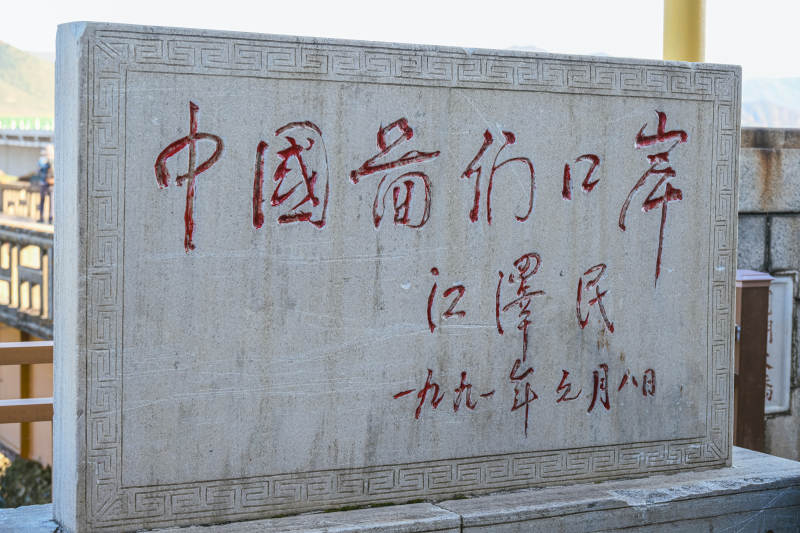 中國圖们口岸
江澤民
一九九一年元月八日